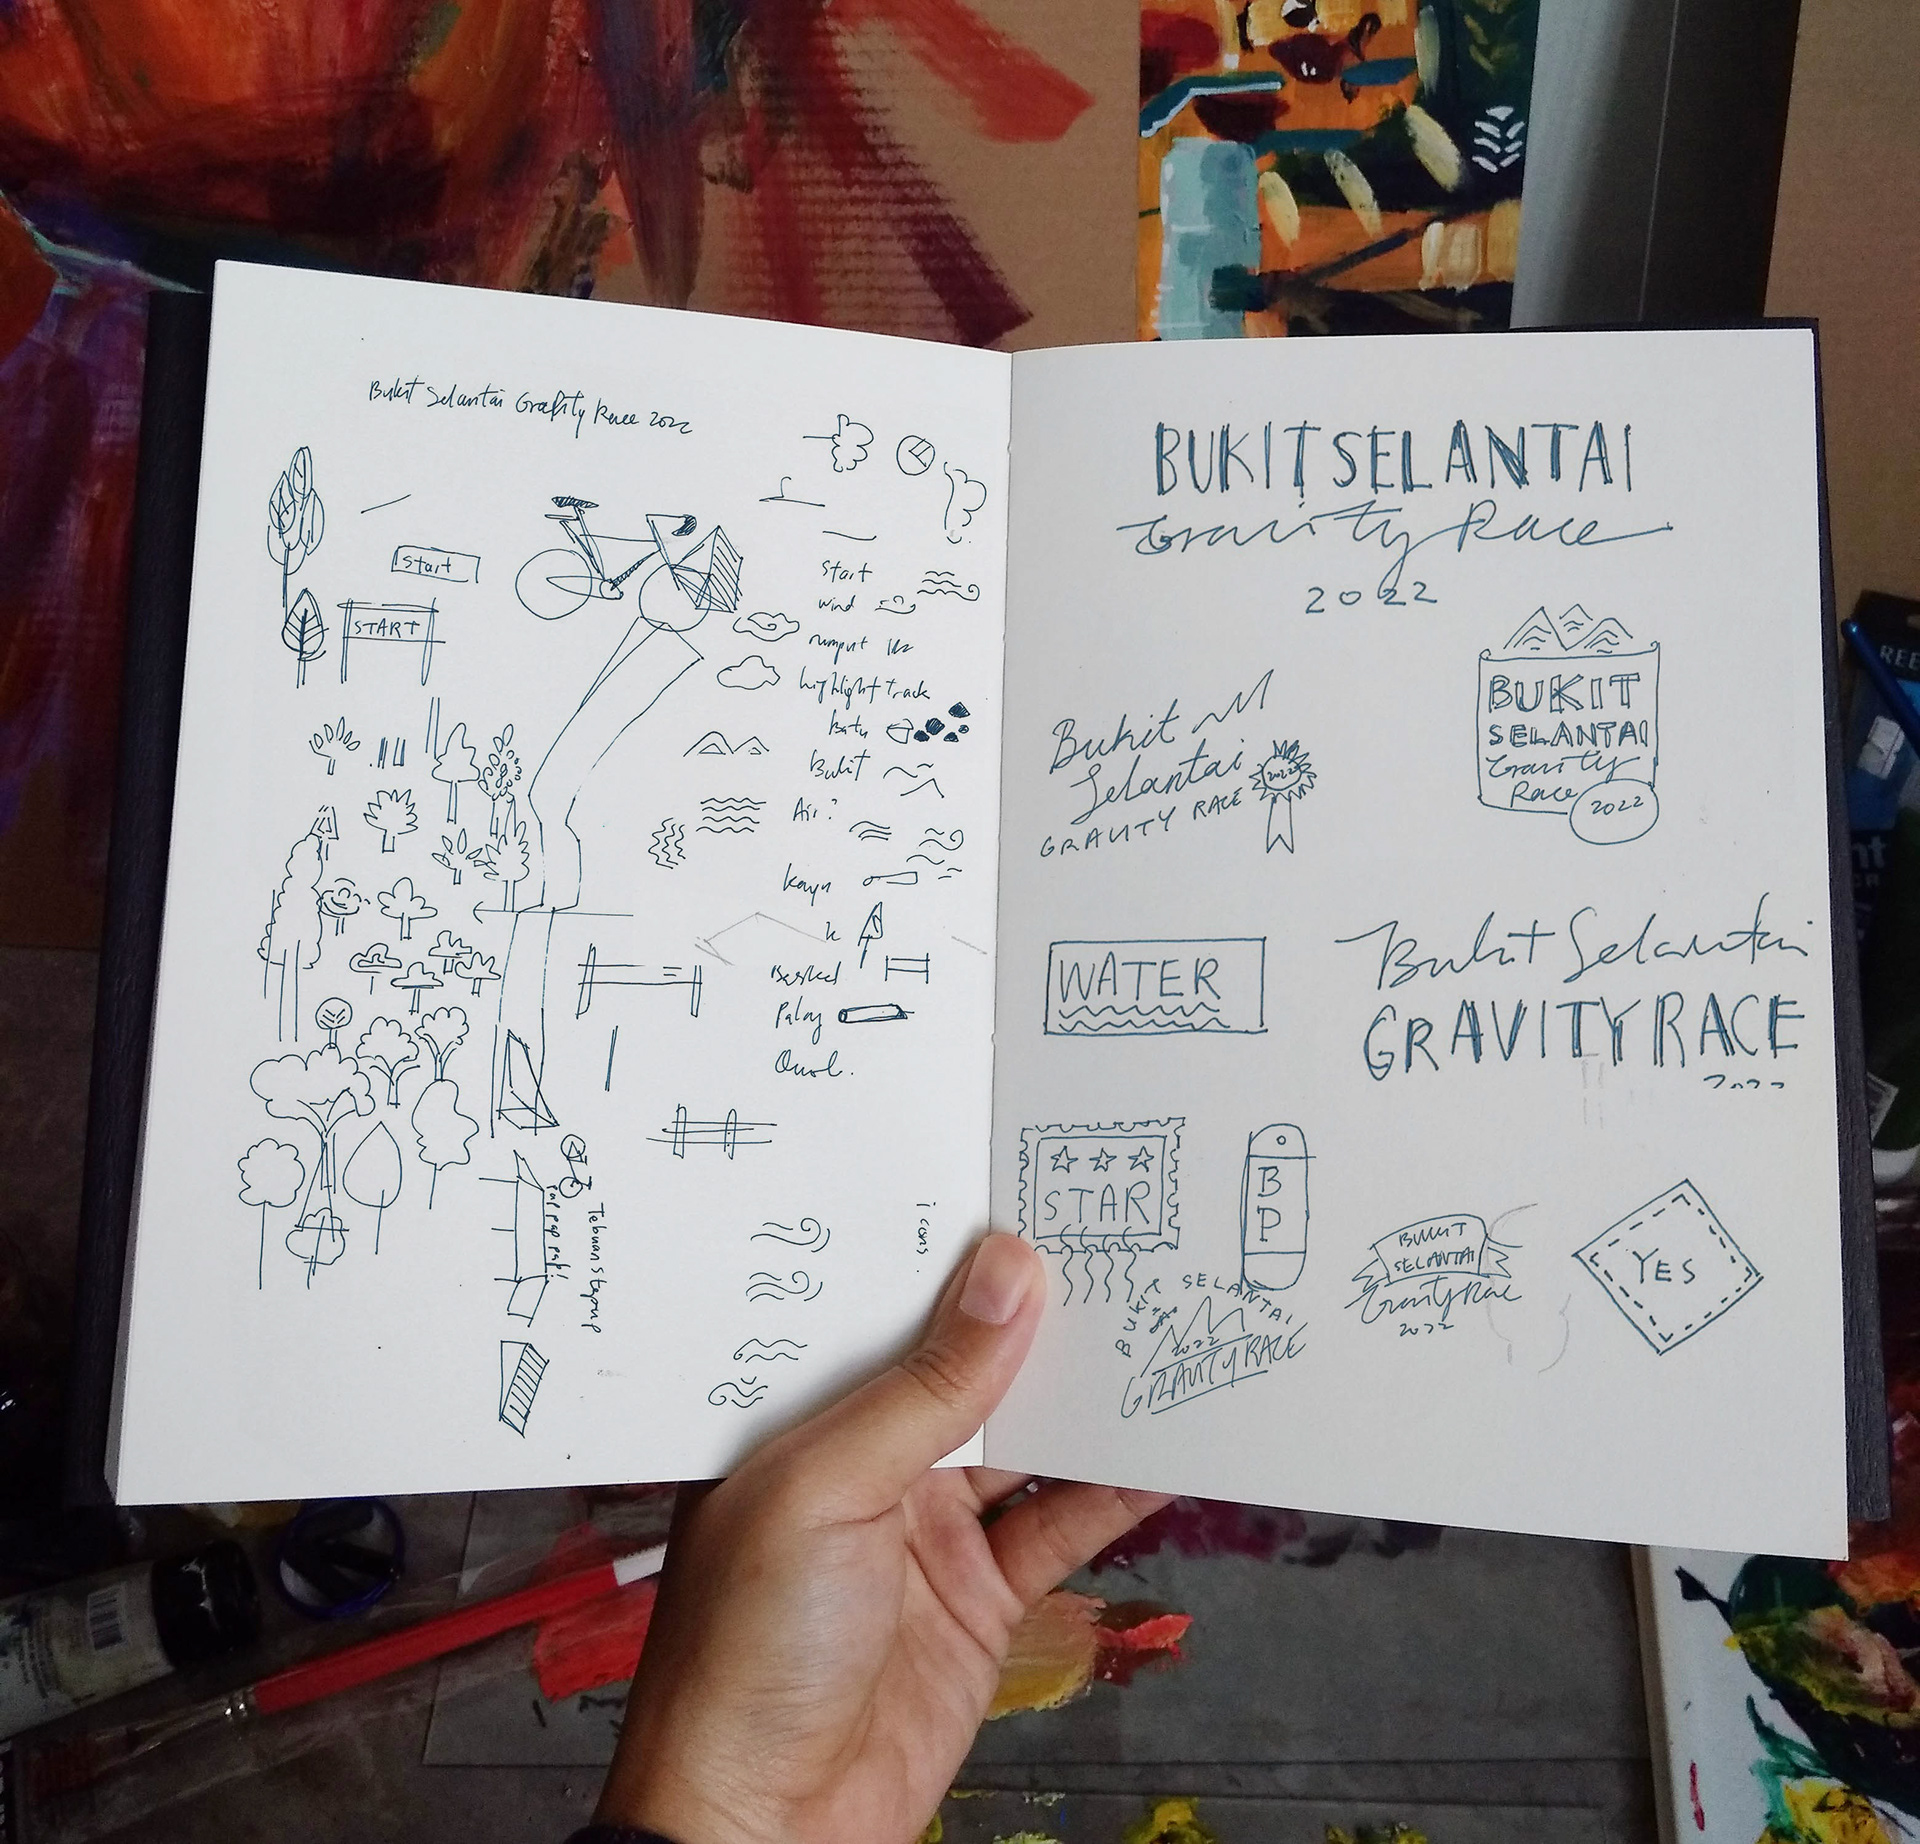 Bukit Selantai Gravity Race 2022
Start
START
start
wind
rumput
highlight track
Batu
Bukit
Air?
kayu
Tebunan stepup
pap pap pap!
icons.
BUKIT SELANTAI
Gravity Race
2022
Bukit
Selantai
GRAVITY RACE
2022
BUKIT
SELANTAI
Gravity
Race
2022
WATER
Bukit Selantai
GRAVITY RACE
2022
STAR
B
P
BUKIT SELANTAI
2022
GRAVITY RACE
BUKIT
SELANTAI
Gravity Race
2022
YES
REE